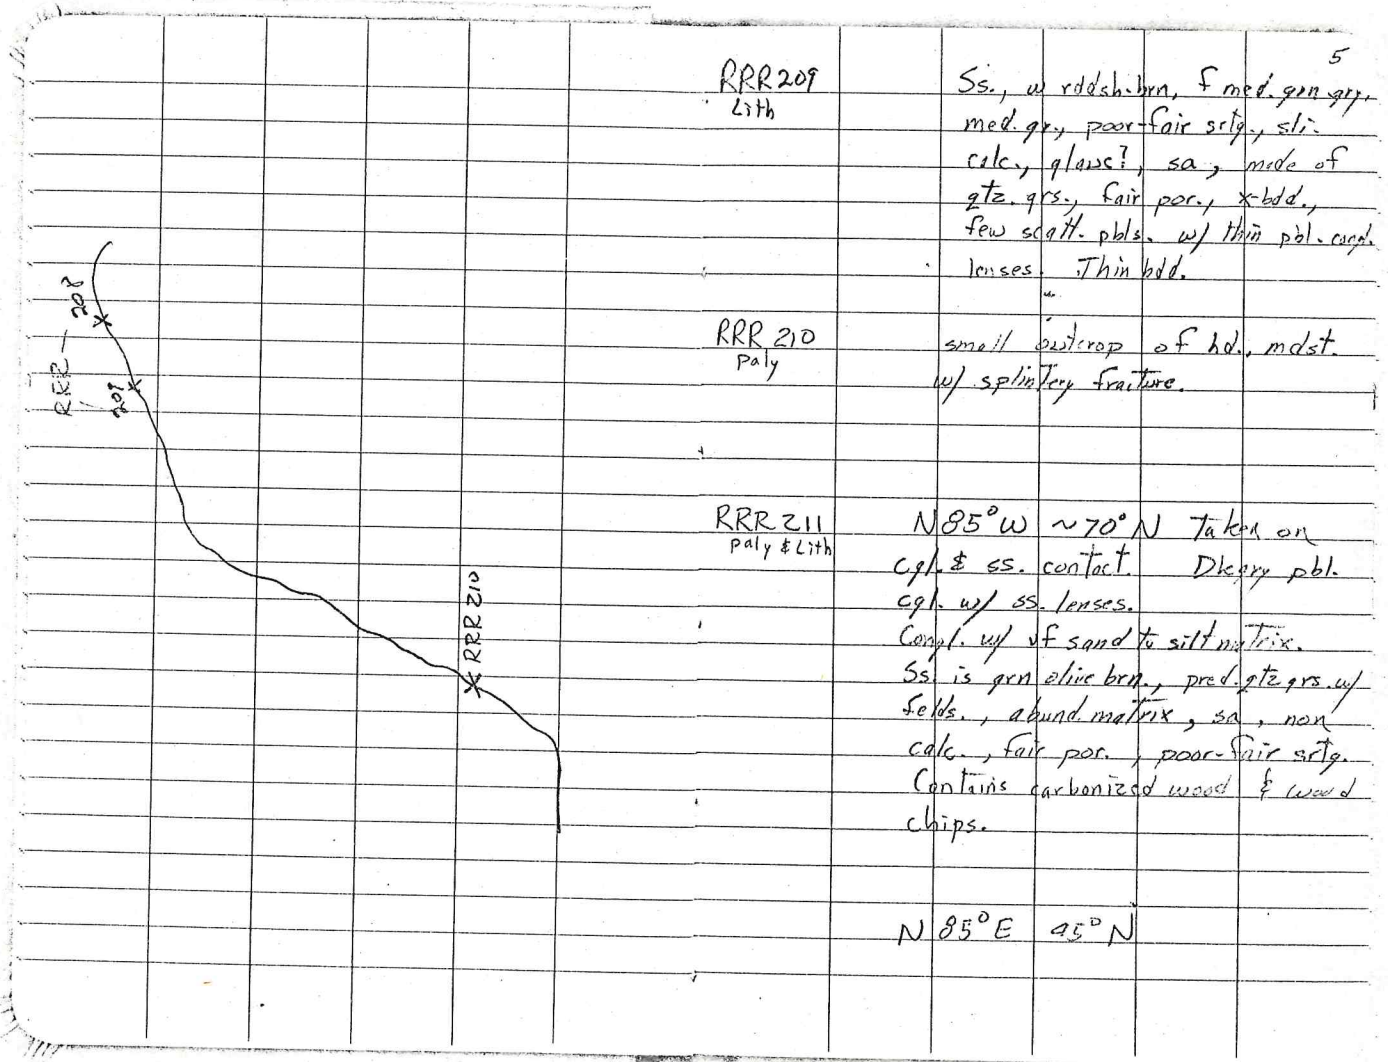 5
RRR - 208
209
RRR 210
RRR 209
Lith
Ss., w rddsh.brn, f med. grn gry,
med. gr., poor-fair srtg., sli.
calc., glauc?, sa, made of
qtz. grs., fair por., x-bdd.,
few scatt. pbls. w/ thin pbl. congl.
lenses. Thin bdd.
RRR 210
Paly
small outcrop of hd., mdst.
w/ splintery fracture.
RRR 211
Paly & Lith
N 85° W ~70° N Taken on
cgl. & ss. contact. Dkgry pbl.
cgl. w/ ss. lenses.
Congl. w/ vf sand to silt matrix.
Ss is grn olive brn., pred. qtz grs. w/
felds., abund. matrix, sa, non
calc., fair por., poor-fair srtg.
Contains carbonized wood & wood
chips.
N 85° E 45° N